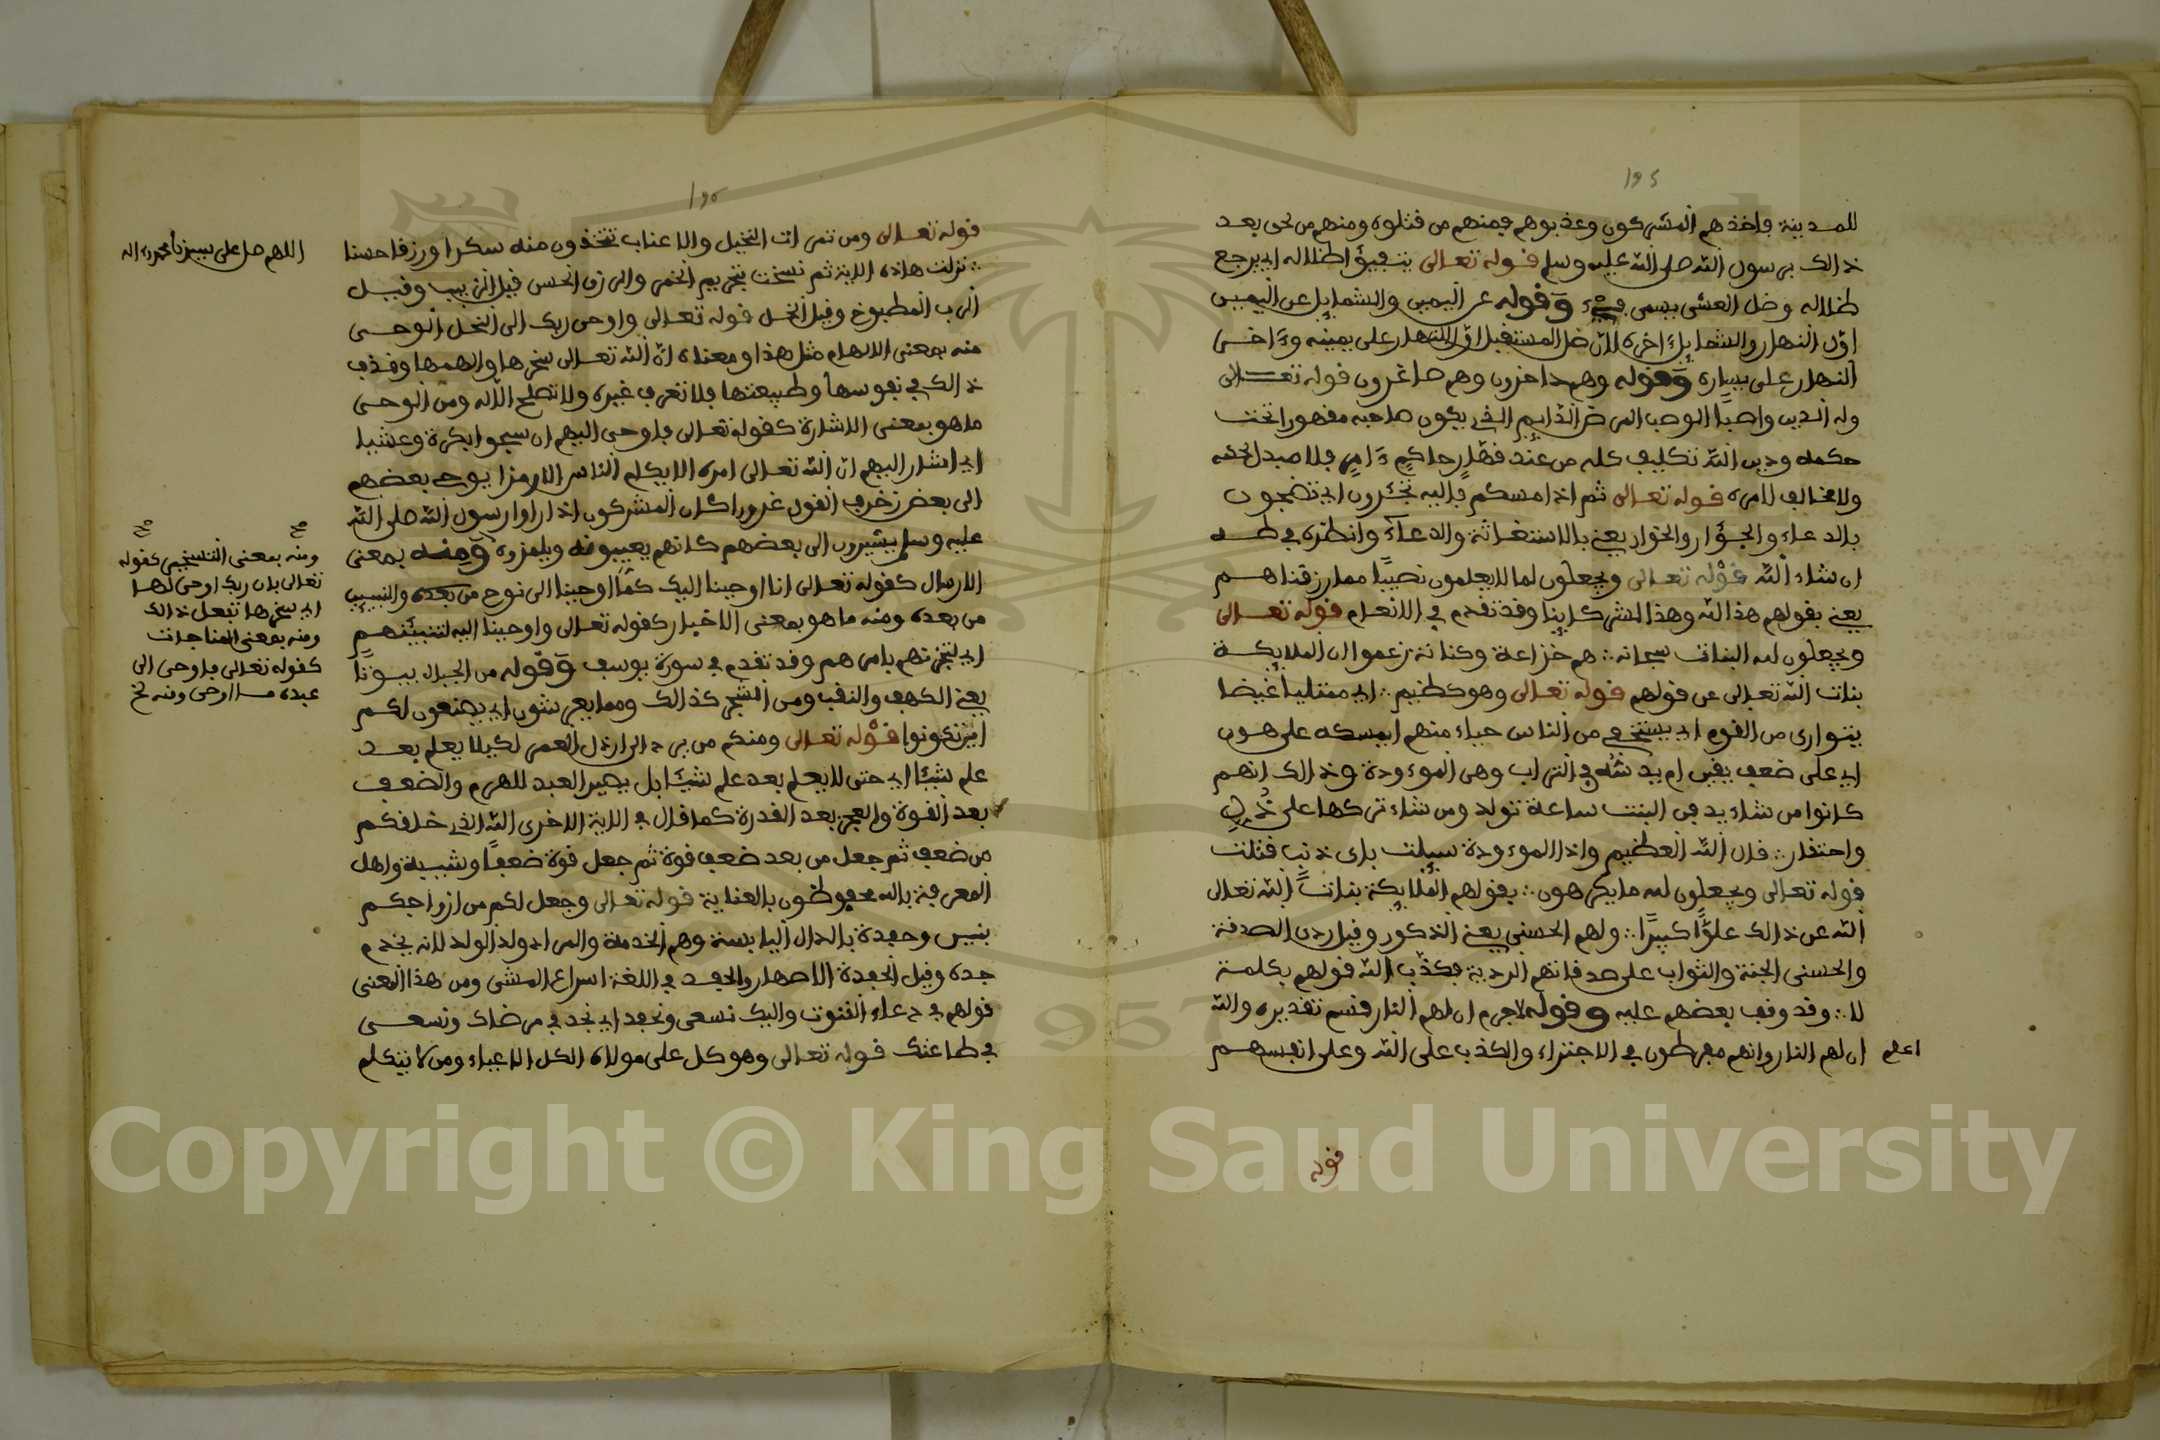 للمدينة فاخذهم المشركون وعذبوهم فمنهم من قتلوه ومنهم من نجى بعد
ذالك برسول الله صلى الله عليه وسلم قوله تعالى يتفيؤ اظلاله اي يرجع
ظلاله وضل العشي يسمى فيء وقوله عن اليمين والشمايل عن اليمين
اول النهار والشمايل ءاخره لان ضل المستقبل اول النهار على يمينه وءاخر
النهار على يساره وقوله وهم داخرون وهم صاغرون قوله تعالى
وله الدين واصبا الوصب المرض الدايم الذي يكون صاحبه مقهورا تحت
حكمه ودين الله تكليف كله من عند قهار حاكم ءامر فلا مبدل لحكمه
ولا مخالف لامره قوله تعالى ثم اذا مسكم فاليه تجئرون اي تضجون
بالدعاء والجؤار والخوار يعني بالاستغاثة والدعاء وانظره في طه
ان شاء الله قوله تعالى ويجعلون لما لا يعلمون نصيبا مما رزقناهم
يعني بقولهم هذا لله وهذا لشركاينا وقد تقدم في الانعام قوله تعالى
ويجعلون لله البنات سبحانه هم خزاعة وكنانة زعموا ان الملايكة
بنات الله تعالى عن قولهم قوله تعالى وهو كظيم اي ممتليا غيضا
يتوارى من القوم اي يستخفي من الناس حياء منهم ايمسكه على هون
اي على ضعف يقين ام يدسه في التراب وهي الموءودة وذالك انهم
كانوا من شاء يدفن البنت ساعة تولد ومن شاء تركها على ذل
واحتقار قال الله العظيم واذا الموءودة سيلت باي ذنب قتلت
قوله تعالى ويجعلون لله ما يكرهون بقولهم الملايكة بنات الله تعالى
الله عن ذالك علوا كبيرا ولهم الحسنى يعني الذكور وقيل ردن الصدقة
والحسنى الجنة والثواب على صدقاتهم الردية فكذب الله قولهم بكلمة
لا وقد وقف بعضهم عليه وقوله لا جرم ان لهم النار قسم تقديره والله
اعلم ان لهم النار وانهم مفرطون في الاجتراء والكذب على الله وعلى انفسهم
قوله
قوله تعالى ومن ثمرات النخيل والاعناب تتخذون منه سكرا ورزقا حسنا
اللهم صل على سيدنا محمد واله
نزلت هاذه الاية ثم نسخت بتحريم الخمر والرزق الحسن قيل الزبيب وقيل
الرب المطبوخ وقيل الخل قوله تعالى واوحى ربك الى النحل الوحي
منه بمعنى الالهام مثل هذا ومعناه ان الله تعالى سخرها والهمها وقذف
ذالك في نفوسها وطبيعتها فلا تعرف غيره ولا تصلح الا له ومن الوحي
ما هو بمعنى الاشارة كقوله تعالى فاوحى اليهم ان سبحوا بكرة وعشيا
اي اشار اليهم ان الله تعالى امره الا يكلم الناس الا رمزا يوحي بعضهم
الى بعض زخرف القول غرورا كان المشركون اذا راوا رسول الله صلى الله
عليه وسلم يشيرون الى بعضهم كانهم يعيبونه ويلمزوه ومنه بمعنى
الارسال كقوله تعالى انا اوحينا اليك كما اوحينا الى نوح من بعده والنبيين
من بعده ومنه ما هو بمعنى الاخبار كقوله تعالى واوحينا اليه لتنبئنهم
اي لتخبرنهم بامرهم وقد تقدم في سورة يوسف وقوله من الجبال بيوتا
يعني الكهف والنقب ومن الشجر كذالك ومما يعرشون اي يصنعون لكم
اين تكونوا قوله تعالى ومنكم من يرد الى ارذل العمر لكيلا يعلم بعد
علم شيئا اي حتى لا يعلم بعد علم شيئا بل يصير العبد للهرم والضعف
بعد القوة والعجز بعد القدرة كما قال في الاية الاخرى الله الذي خلقكم
من ضعف ثم جعل من بعد ضعف قوة ثم جعل قوة ضعفا وشيبة واهل
المعرفة بالله محفوظون بالعناية قوله تعالى وجعل لكم من ازواجكم
بنين وحفدة بالدال اليابسة وهم الخدمة والمراد ولد الولد لانه يخدم
جده وقيل الحفدة الاصهار والحفد في اللغة اسراع المشي ومن هذا المعنى
قولهم في دعاء القنوت واليك نسعى ونحفد اي نجد في مرضاك ونسعى
في طاعتك قوله تعالى وهو كل على مولاه الكل الاعياء ومن لا يتكلم
صح صح
ومنه بمعنى التسخير كقوله
تعالى بان ربك اوحى لها
اي سخرها تفعل ذالك
ومنه بمعنى المناجات
كقوله تعالى فاوحى الى
عبده ما اوحى ومنه صح